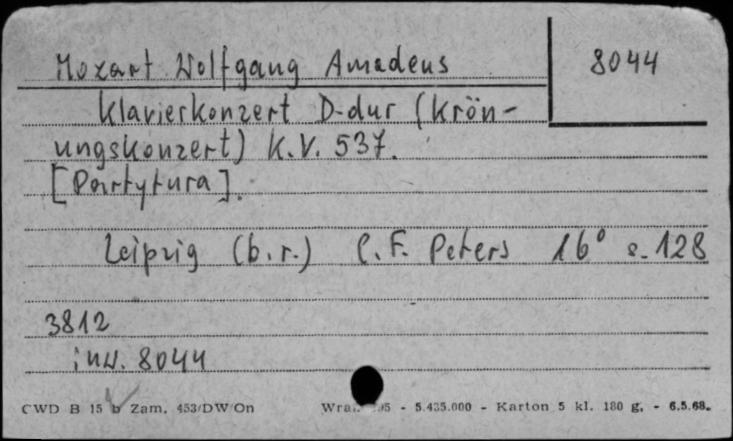 Mozart Wolfgang Amadeus
8044
Klavierkonzert D-dur (Krön-
ungskonzert) K.V. 537.
[Partytura].
Leipzig (b.r.) C.F. Peters 16° s. 128
3812
inw. 8044
CWD B 15 b Zam. 453/DW/On
5.435.000 - Karton 5 kl. 180 g. - 6.5.68.